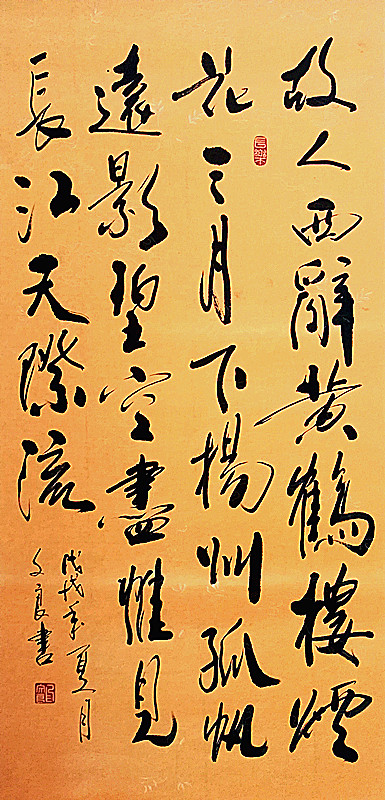 故人西辭黃鶴樓煙
花三月下揚州孤帆
遠影碧空盡惟見
長江天際流
戊戌年夏月
文良書